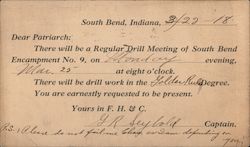 South Bend, Indiana, 3/22-18
Dear Patriarch:
There will be a Regular Drill Meeting of South Bend
Encampment No. 9, on Monday evening,
Mar. 25 at eight o'clock.
There will be drill work in the Golden Rule Degree.
You are earnestly requested to be present.
Yours in F. H. & C.
Seybold Captain.
(P.S.) Please do not fail me Chas, as I am depending on
you.